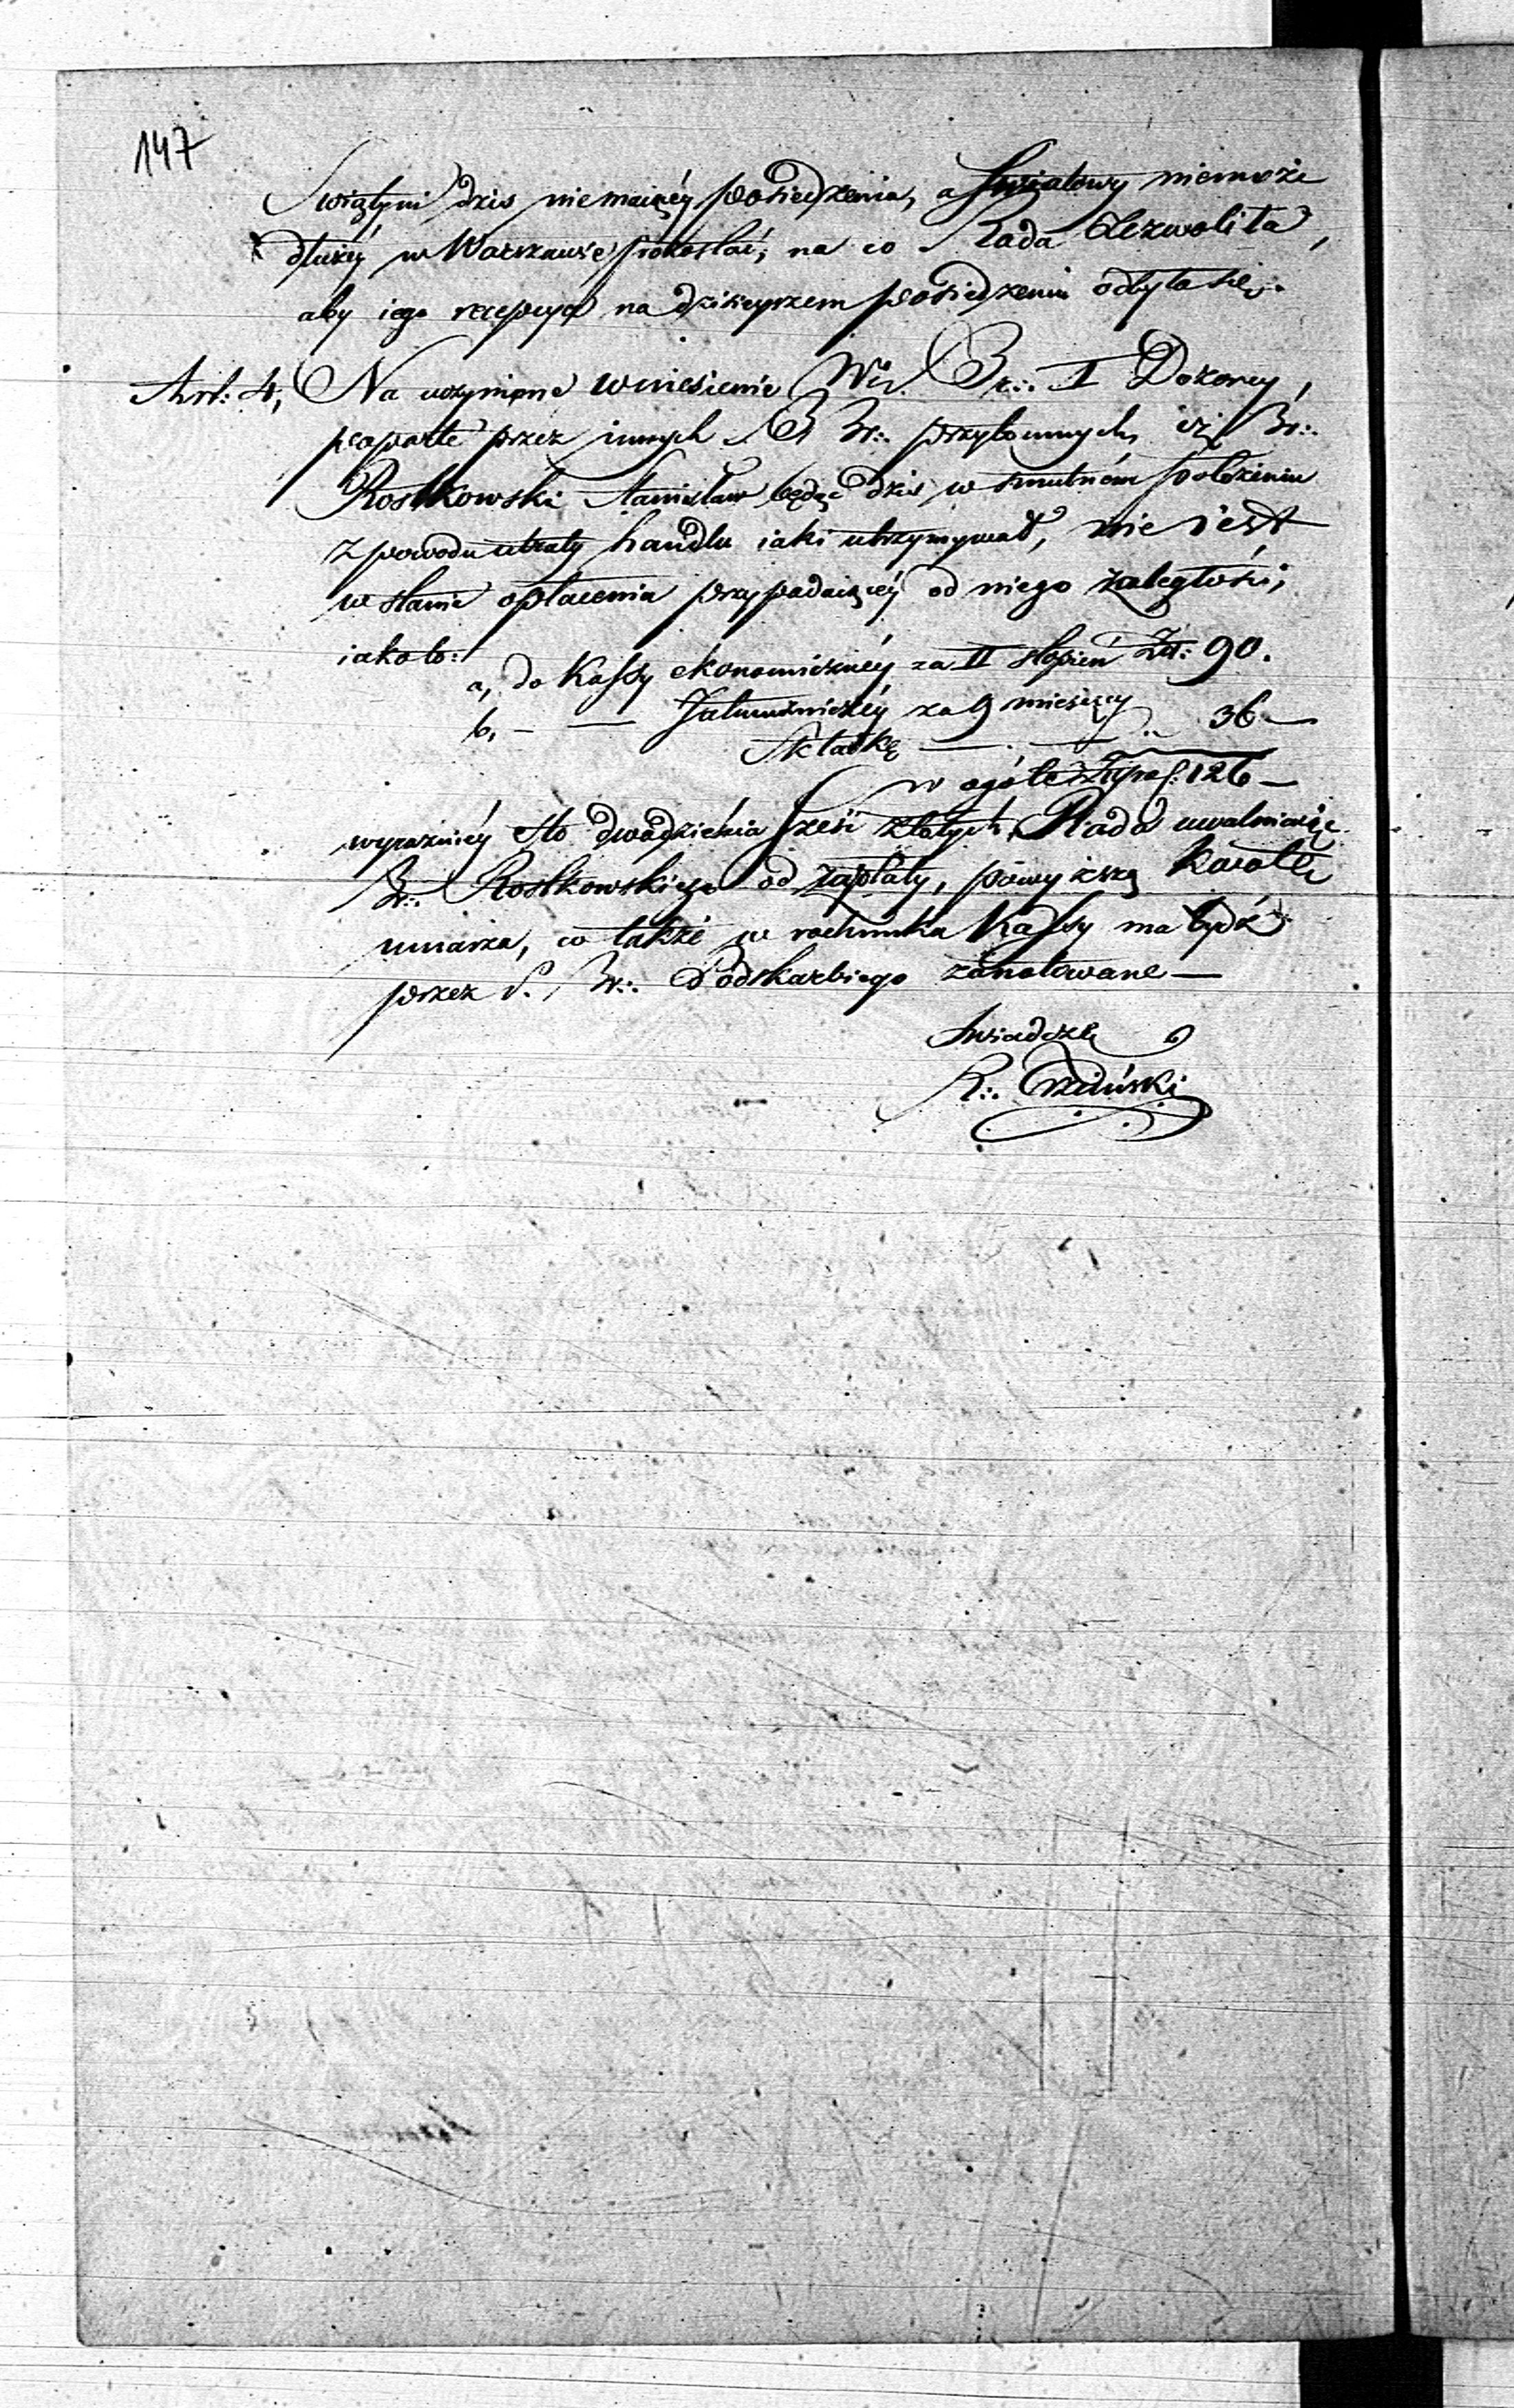 147
Swiątyni dzis niemaiącéy posiedzenia, a Swiatowy niemoże
dłużéy w Warszawie pozostać, na co Rada zezwoliła,
aby iego recepcya na dzisieyszem posiedzeniu odbyła się.
Art: 4, Na uczynione wniesienie Br∴ I Dozorcy,
poparte przez innych BBr∴ przytomnych, iż Br∴
Rostkowski Stanisław będąc dzis w smutném położeniu
z powodu utraty handlu iaki utrzymywał, nie iest
w stanie opłacenia przypadaiącéy od niego zaległości,
iako to:
a, do Kassy ekonomicznéy za II stopień Zł: 90.
b, – — Jałmużniczéy za 9 miesięcy
Składkę — . — „ 36 —
w ogóle Złpol: 126 —
wyraźniéy sto dwadzieścia sześć złotych, Rada uwalniaiąc
Br∴ Rostkowskiego od zapłaty, powyższą kwotę
umarza, co także w rachunku Kassy ma bydź
przez S. Br∴ Podskarbiego zanotowane —
Swiadczę